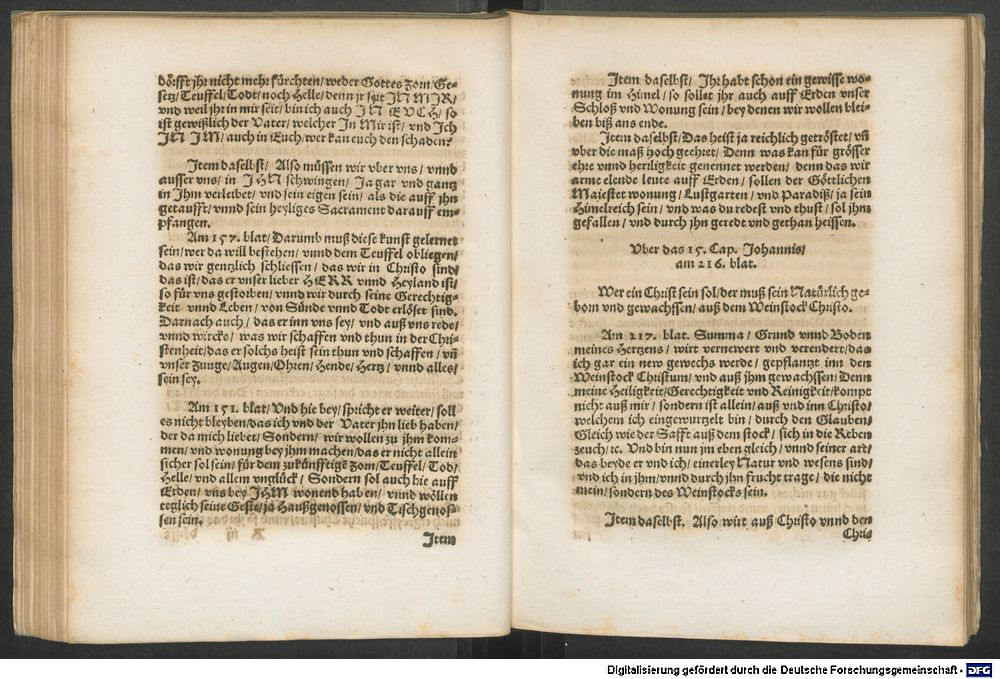 dörfft jhr nicht mehr fürchten/ weder Gottes Zorn/ Ge-
setz/ Teuffel/ Todt/ noch Helle/ denn jr seit IN MIR/
vnd weil jhr in mir seit/ bin ich auch IN EVCH/ so
ist gewißlich der Vater/ welcher In Mir ist/ vnd Ich
IN IM/ auch in Euch/ wer kan euch den schaden?
Item daselbst/ Also müssen wir vber vns/ vnnd
ausser vns/ in IHN schwingen/ Ja gar vnd gantz
in Ihm verleibet/ vnd sein eigen sein/ als die auff jhn
getaufft/ vnnd sein heyliges Sacrament darauff em-
pfangen.
Am 157. blat/ Darumb muß diese kunst gelernet
sein/ wer da will bestehen/ vnnd dem Teuffel obliegen/
das wir gentzlich schliessen/ das wir in Christo sind/
das ist/ das er vnser lieber HERR vnnd Heyland ist/
so für vns gestorben/ vnnd wir durch seine Gerechtig-
keit vnnd Leben/ von Sünde vnnd Todt erlöset sind.
Darnach auch/ das er inn vns sey/ vnd auß vns rede/
vnnd wircke/ was wir schaffen vnd thun in der Chri-
stenheit/ das er solchs heist sein thun vnd schaffen/ vñ
vnser Zunge/ Augen/ Ohren/ Hende/ Hertz/ vnnd alles/
sein sey.
Am 151. blat/ Vnd hie bey/ spricht er weiter/ soll
es nicht bleyben/ das ich vnd der Vater jhn lieb haben/
der da mich liebet/ Sondern/ wir wollen zu jhm kom-
men/ vnd wonung bey jhm machen/ das er nicht allein
sicher sol sein/ für dem zukünfftigē Zorn/ Teuffel/ Tod/
Helle/ vnd allem vnglück/ Sondern sol auch hie auff
Erden/ vns bey IHM wonend haben/ vnnd wöllen
teglich seine Geste/ ja Haußgenossen/ vnd Tischgenos-
sen sein.
Item
Item daselbst/ Ihr habt schon ein gewisse wo-
nung im Himel/ so sollet jhr auch auff Erden vnser
Schloß vnd Wonung sein/ bey denen wir wollen blei-
ben biß ans ende.
Item daselbst/ Das heist ja reichlich getröstet/ vñ
vber die maß hoch geehret/ Denn was kan für grösser
ehre vnnd herrligkeit genennet werden/ denn das wir
arme elende leute auff Erden/ sollen der Göttlichen
Maiestet wonung/ Lustgarten/ vnd Paradiß/ ja sein
Himelreich sein/ vnd was du redest vnd thust/ sol jhm
gefallen/ vnd durch jhn geredt vnd gethan heissen.
Vber das 15. Cap. Johannis/
am 216. blat.
Wer ein Christ sein sol/ der muß sein Natürlich ge-
born vnd gewachssen/ auß dem Weinstock Christo.
Am 217. blat. Summa/ Grund vnnd Boden
meines Hertzens/ wirt vernewert vnd verendert/ das
ich gar ein new gewechs werde/ gepflantzt inn den
Weinstock Christum/ vnd auß jhm gewachssen/ Denn
meine Heiligkeit/ Gerechtigkeit vnd Reinigkeit/ kompt
nicht auß mir/ sondern ist allein/ auß vnd inn Christo/
welchem ich eingewurtzelt bin/ durch den Glauben/
Gleich wie der Safft auß dem stock/ sich in die Reben
zeuch/ ꝛc. Vnd bin nun jm eben gleich/ vnnd seiner art/
das beyde er vnd ich/ einerley Natur vnd wesens sind/
vnd ich in jhm/ vnnd durch jhn frucht trage/ die nicht
mein/ sondern des Weinstocks sein.
Item daselbst. Also wirt auß Christo vnnd den
Chri-
Digitalisierung gefördert durch die Deutsche Forschungsgemeinschaft - DFG